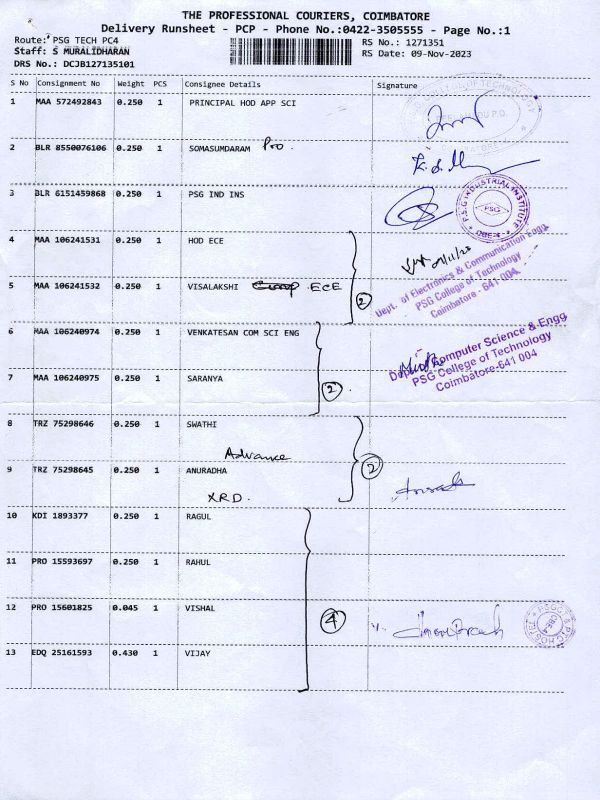 THE PROFESSIONAL COURIERS, COIMBATORE
Delivery Runsheet - PCP - Phone No.:0422-3505555 - Page No.:1
Route: PSG TECH PC4
RS No.: 1271351
Staff: S MURALIDHARAN
RS Date: 09-Nov-2023
DRS No.: DCJB127135101
S No Consignment No Weight PCS Consignee Details Signature
1 MAA 572492843 0.250 1 PRINCIPAL HOD APP SCI
2 BLR 8550076106 0.250 1 SOMASUMDARAM Pro
3 BLR 6151459868 0.250 1 PSG IND INS
P.S.G INDUSTRIAL INSTITUTE
PSG
CBE-4
4 MAA 106241531 0.250 1 HOD ECE
Dept. of Electronics & Communication Engg
PSG College of Technology
Coimbatore - 641 004
5 MAA 106241532 0.250 1 VISALAKSHI ECE
2
6 MAA 106240974 0.250 1 VENKATESAN COM SCI ENG
Computer Science & Engg
PSG College of Technology
Coimbatore-641 004
7 MAA 106240975 0.250 1 SARANYA
2
8 TRZ 75298646 0.250 1 SWATHI
Advance
2
9 TRZ 75298645 0.250 1 ANURADHA
XRD.
10 KDI 1893377 0.250 1 RAGUL
11 PRO 15593697 0.250 1 RAHUL
12 PRO 15601825 0.045 1 VISHAL
4
13 EDQ 25161593 0.430 1 VIJAY